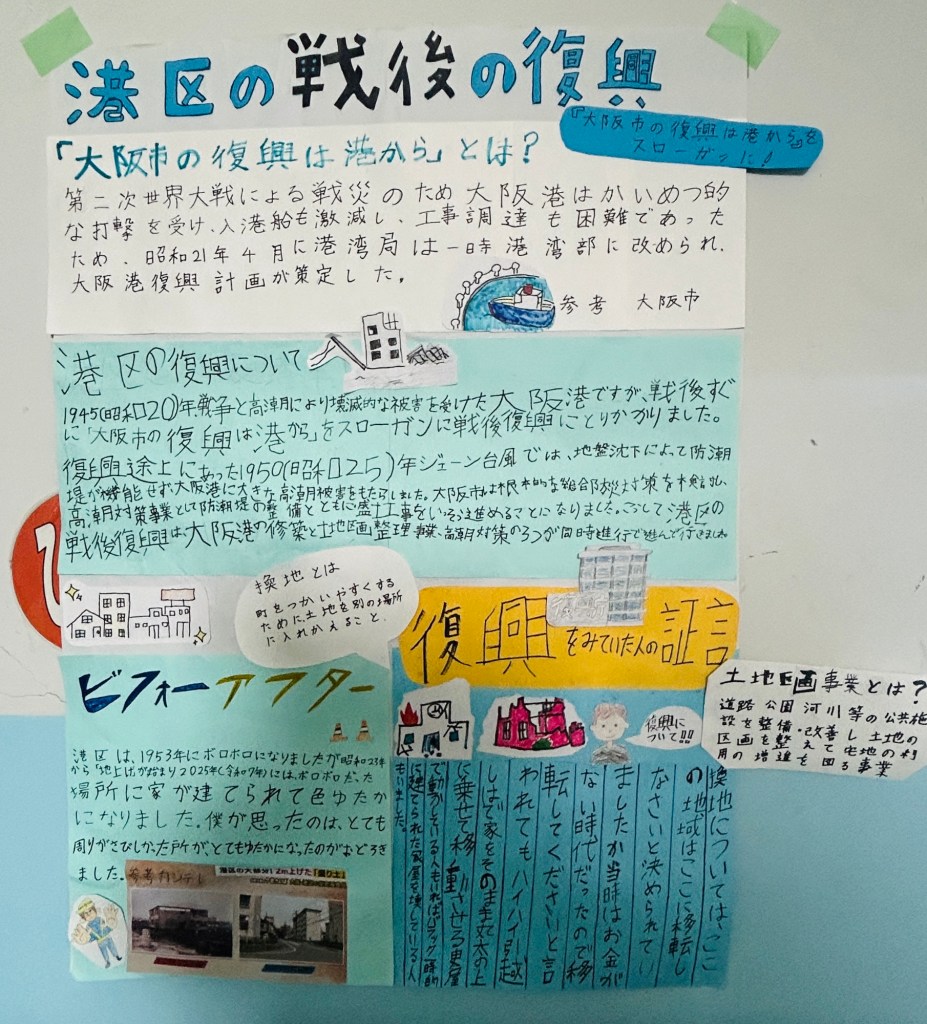 港区の戦後の復興
『大阪市の復興は港から』を
スローガンに!
「大阪市の復興は港から」とは?
第二次世界大戦による戦災のため大阪港はかいめつ的
な打撃を受け、入港船も激減し、工事調達も困難であった
ため、昭和21年4月に港湾局は一時港湾部に改められ、
大阪港復興計画が策定した。
参考 大阪市
港区の復興について
1945(昭和20)年戦争と高潮により壊滅的な被害を受けた大阪港ですが、戦後すぐ
に「大阪市の復興は港から」をスローガンに戦後復興にとりかかりました。
復興途上にあった1950(昭和25)年ジェーン台風では、地盤沈下によって防潮
堤が機能せず大阪港に大きな高潮被害をもたらしました。大阪市は根本的な総合防災対策を検討し、
高潮対策事業として防潮堤の整備とともに盛土工事をいっそう進めることになりました。こうして港区の
戦後復興は、大阪港の修築と土地区画整理事業、高潮対策の3つが同時進行で進んで行きました
換地とは
町をつかいやすくする
ために土地を別の場所
に入れかえること。
復興をみていた人の証言
ビフォーアフター
復興に
ついて!!
土地区画事業とは?
道路公園河川等の公共施
設を整備・改善し土地の
区画を整えて宅地の利
用の増進を図る事業
港区は、1953年にボロボロになりましたが昭和23年
から「地上げ」が始まり2025年(令和7年)には、ボロボロだった
場所に家が建てられて色ゆたか
になりました。僕が思ったのは、とても
周りがさびしかった所が、とてもゆたかになったのがおどろき
ました。
参考カンテレ
港区の大部分 2m上げた「盛り土」
換地については、ここ
の地域はここに移転し
なさいと決められてい
ましたが当時はお金が
ない時代だったので移
転してくださいと言
われても、ハイハイ引越
しはで家をそのまま丸太の上
に乗せて移動させる
で動かしている人もいればバラック一時的
に建てられた家屋を壊している人
もいました。